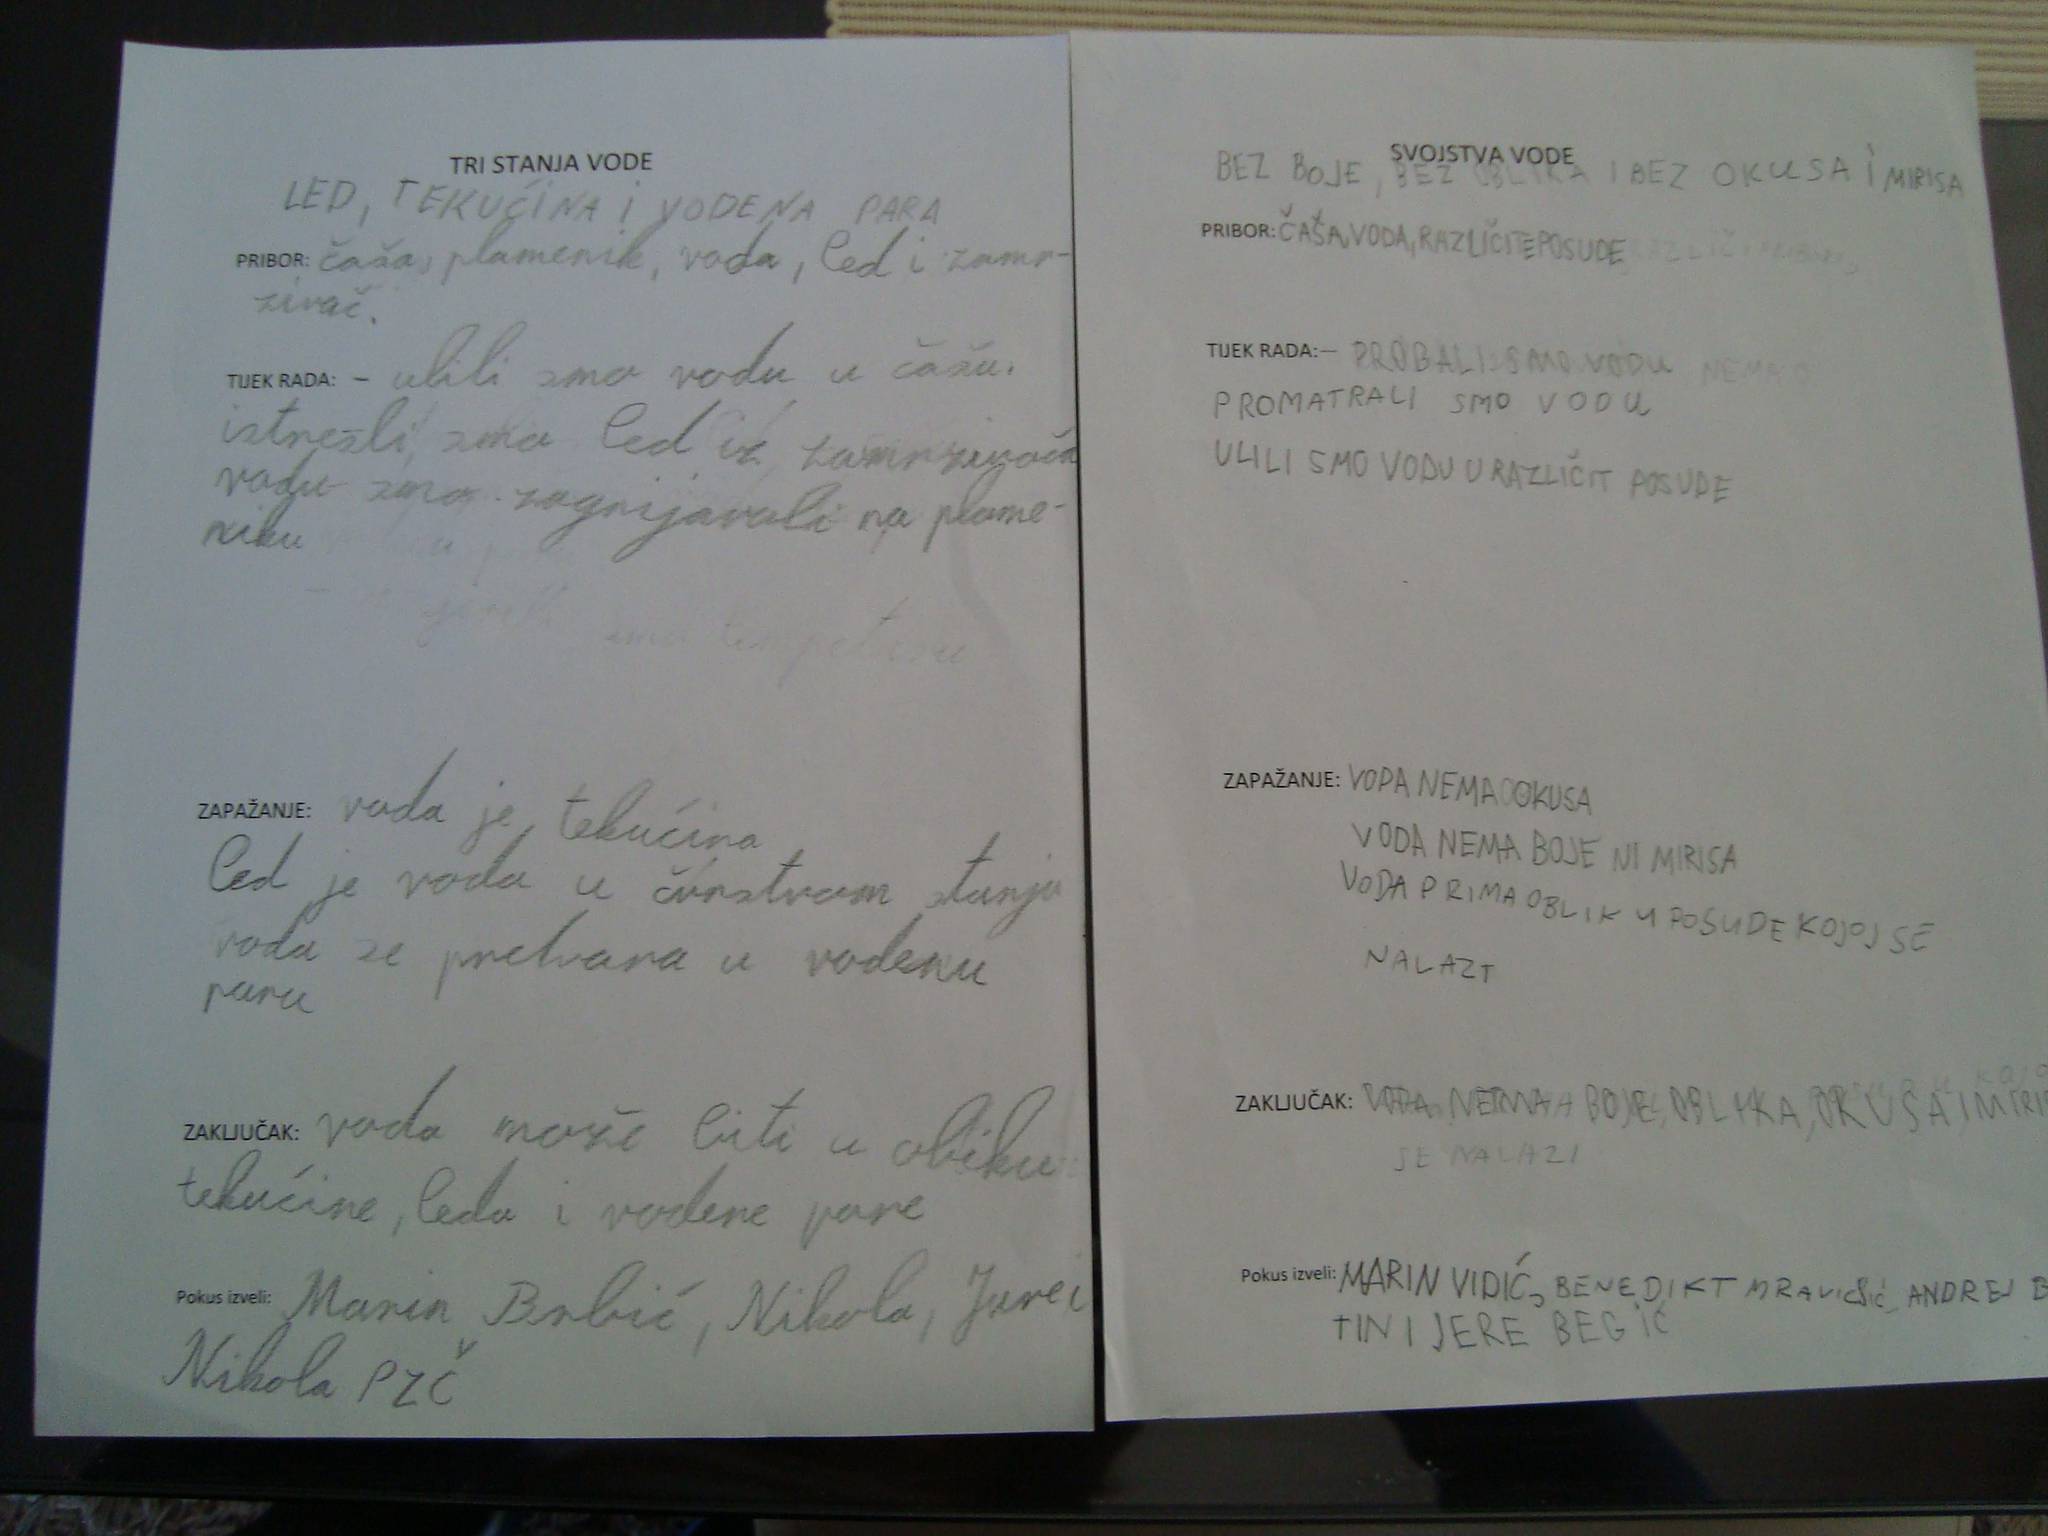 TRI STANJA VODE
LED, TEKUĆINA I VODENA PARA
PRIBOR: čaša, plamenik, voda, led i zamr-
zivač.
TIJEK RADA: - ulili smo vodu u čašu.
smo led iz zamrzivača
vodu smo zagrijavali na plame-
niku
smo
ZAPAŽANJE: voda je tekućina
led je voda u čvrstvom stanju
voda se pretvara u vodenu
paru
ZAKLJUČAK: voda može biti u obiku
tekućine, leda i vodene pare
Pokus izveli: Marin Brbić, Nikola, Jure i
Nikola PZČ
SVOJSTVA VODE
BEZ BOJE, BEZ OBLIKA I BEZ OKUSA I MIRISA
PRIBOR: ČAŠA, VODA, RAZLIČITE POSUDE
TIJEK RADA: - PROBALI SMO VODU NEMA
PROMATRALI SMO VODU
ULILI SMO VODU U RAZLIČIT POSUDE
ZAPAŽANJE: VODA NEMA OKUSA
VODA NEMA BOJE NI MIRISA
VODA PRIMA OBLIK U POSUDE KOJOJ SE
NALAZI
ZAKLJUČAK: VODA NEMA BOJE, OBLIKA, OKUSA I MIRI
SE NALAZI
Pokus izveli: MARIN VIDIĆ, BENEDIKT MRAVIČIĆ, ANDREJ B
TIN I JERE BEGIĆ